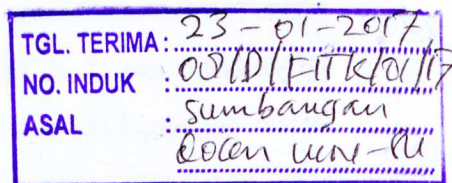 TGL. TERIMA : 23-01-2017
NO. INDUK : 008/D/FITK/01/17
ASAL : Sumbangan
Dosen